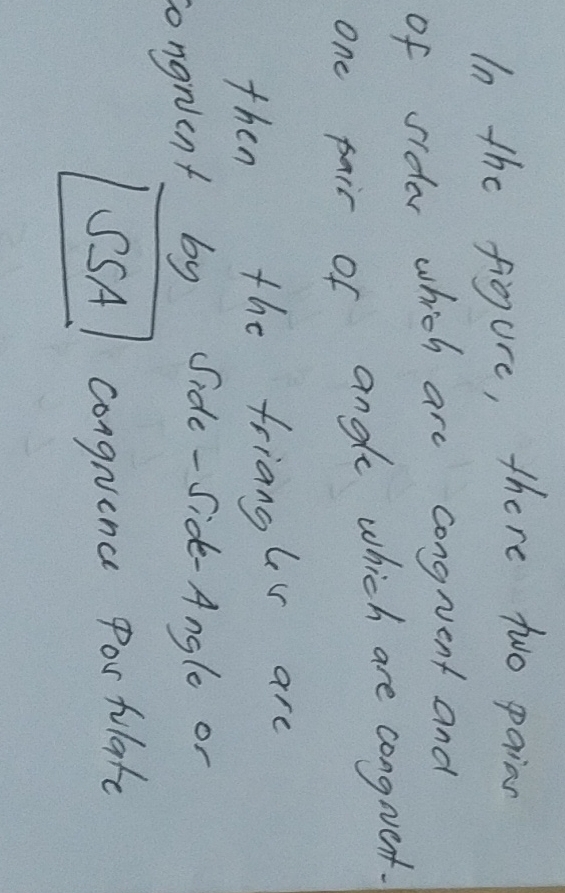 In the figure, there two pairs
of sides which are congruent and
one pair of angle which are congruent.
then the triangles are
congruent by Side-Side-Angle or
SSA congruence Postulate